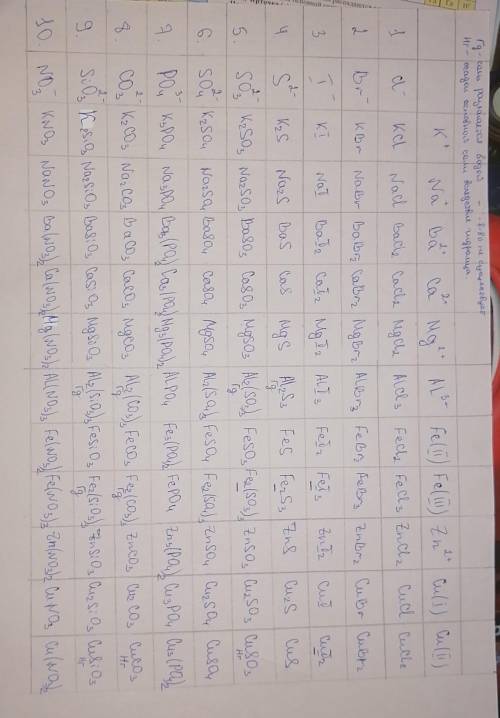 Гд - соль разлагается водой – - в-во не существует
K⁺ Na⁺ Ba²⁺ Ca²⁺ Mg²⁺ Al³⁺ Fe(II) Fe(II) Zn²⁺ Cu(I) Cu(II)
1 Cl⁻ KCl NaCl BaCl₂ CaCl₂ MgCl₂ AlCl₃ FeCl₂ FeCl₃ ZnCl₂ CuCl CuCl₂
2 Br⁻ KBr NaBr BaBr₂ CaBr₂ MgBr₂ AlBr₃ FeBr₂ FeBr₃ ZnBr₂ CuBr CuBr₂
3 I⁻ KI NaI BaI₂ CaI₂ MgI₂ AlI₃ FeI₂ FeI₃ ZnI₂ CuI CuI₂
4 S²⁻ K₂S Na₂S BaS CaS MgS Al₂S₃ FeS Fe₂S₃ ZnS Cu₂S CuS
гд
5. SO₃²⁻ K₂SO₃ Na₂SO₃ BaSO₃ CaSO₃ MgSO₃ Al₂(SO₃)₃ FeSO₃ Fe₂(SO₃)₃ ZnSO₃ Cu₂SO₃ CuSO₃
гд Hr
6. SO₄²⁻ K₂SO₄ Na₂SO₄ BaSO₄ CaSO₄ MgSO₄ Al₂(SO₄)₃ FeSO₄ Fe₂(SO₄)₃ ZnSO₄ Cu₂SO₄ CuSO₄
7. PO₄³⁻ K₃PO₄ Na₃PO₄ Ba₃(PO₄)₂ Ca₃(PO₄)₂ Mg₃(PO₄)₂ AlPO₄ Fe₃(PO₄)₂ FePO₄ Zn₃(PO₄)₂ Cu₃PO₄ Cu₃(PO₄)₂
8. CO₃²⁻ K₂CO₃ Na₂CO₃ BaCO₃ CaCO₃ MgCO₃ Al₂(CO₃)₃ FeCO₃ Fe₂(CO₃)₃ ZnCO₃ Cu₂CO₃ CuCO₃
гд гд Hr
9. SiO₃²⁻ K₂SiO₃ Na₂SiO₃ BaSiO₃ CaSiO₃ MgSiO₃ Al₂(SiO₃)₃ FeSiO₃ Fe₂(SiO₃)₃ ZnSiO₃ Cu₂SiO₃ CuSiO₃
гд гд Hr
10. NO₃⁻ KNO₃ NaNO₃ Ba(NO₃)₂ Ca(NO₃)₂ Mg(NO₃)₂ Al(NO₃)₃ Fe(NO₃)₂ Fe(NO₃)₃ Zn(NO₃)₂ CuNO₃ Cu(NO₃)₂